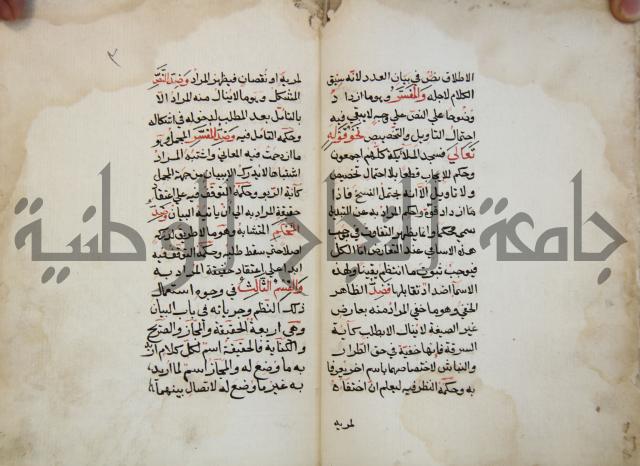 الاطلاق نص في بيان العدد لانه سيق
الكلام لاجله والمفسر وهو ما ازداد
وضوحا على النص على وجه لا يبقى فيه
احتمال التأويل والتخصيص نحو قوله
تعالى فسجد الملائكة كلهم اجمعون
وحكمه الايجاب قطعا بلا احتمال تخصيص
ولا تاويل الا انه يحتمل النسخ فاذا
ازداد قوة واحكم المراد به عن التبديل
سمى محكما وانما يظهر التفاوت في
هذه الاسامى عند التعارض اما الكل
فيوجب ثبوت ما انتظمه يقينا ولهذه
الاسماء اضداد تقابلها فضد الظاهر
الخفى وهو ما خفى المراد منه بعارض
غير الصيغة لا ينال الا بطلب كآية
السرقة فانها خفية في حق الطرار
والنباش لاختصاصهما باسم اخر يعرفا
به وحكمه النظر فيه ليعلم ان اختفاه
لمزية
لمزية او نقصان فيظهر المراد وضد النص
المشكل وهو ما لا ينال منه المراد الا
بالتامل بعد الطلب لدخوله في اشكاله
وحكمه التامل فيه وضد المفسر المجمل وهو
ما ازدحمت فيه المعاني واشتبه المراد
اشتباها لا يدرك الا ببيان من جهة المجمل
كآية الربو وحكمه التوقف فيه على اعتقاد
حقيقة المراد به الى ان ياتيه البيان وضد
المحكم المتشابه وهو ما لا طريق لدركه
اصلا حتى سقط طلبه وحكمه التوقف فيه
ابدا على اعتقاد حقيقة المراد به
والقسم الثالث في وجوه استعمال
ذلك النظم وجريانه في باب البيان
وهي اربعة الحقيقة والمجاز والصريح
والكناية فالحقيقة اسم لكل كلام اريد
به ما وضع له والمجاز اسم لما اريد
به غير ما وضع له لاتصال بينهما
جامعة النجاح الوطنية